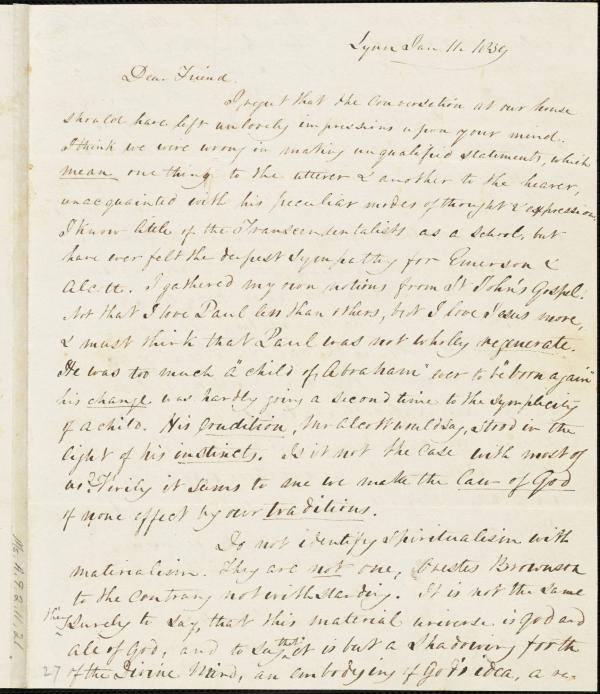 Lynn Jan. 11. 1839
Dear Friend.
I regret that the conversation at our house
should have left unlovely impressions upon your mind.
I think we were wrong in making unqualified statements, which
mean one thing to the utterer & another to the hearer,
unacquainted with his peculiar modes of thought & expression.
I know little of the Transcendentalists as a school, but
have ever felt the deepest sympathy for Emerson &
Alcott. I gathered my own notions from St John's Gospel.
Not that I love Paul less than others, but I love Jesus more,
& must think that Paul was not wholly regenerate.
He was too much a "child of Abraham" ever to be "born again"
his change was hardly going a second time to the symplicity
of a child. His erudition, Mr Alcott would say, stood in the
light of his instincts. Is it not the case with most of
us? Verily it seems to me we make the law of God
of none effect by our traditions.
Do not identify Spiritualism with
materialism. They are not one, Orestes Brownson
to the contrary notwithstanding. It is not the same
thing surely to say, that this material universe is God and
all of God, and to say that it is but a shadowing forth
of the Divine Mind, an embodying of God's idea, a re-
Ms. A.9.2.11.21
27